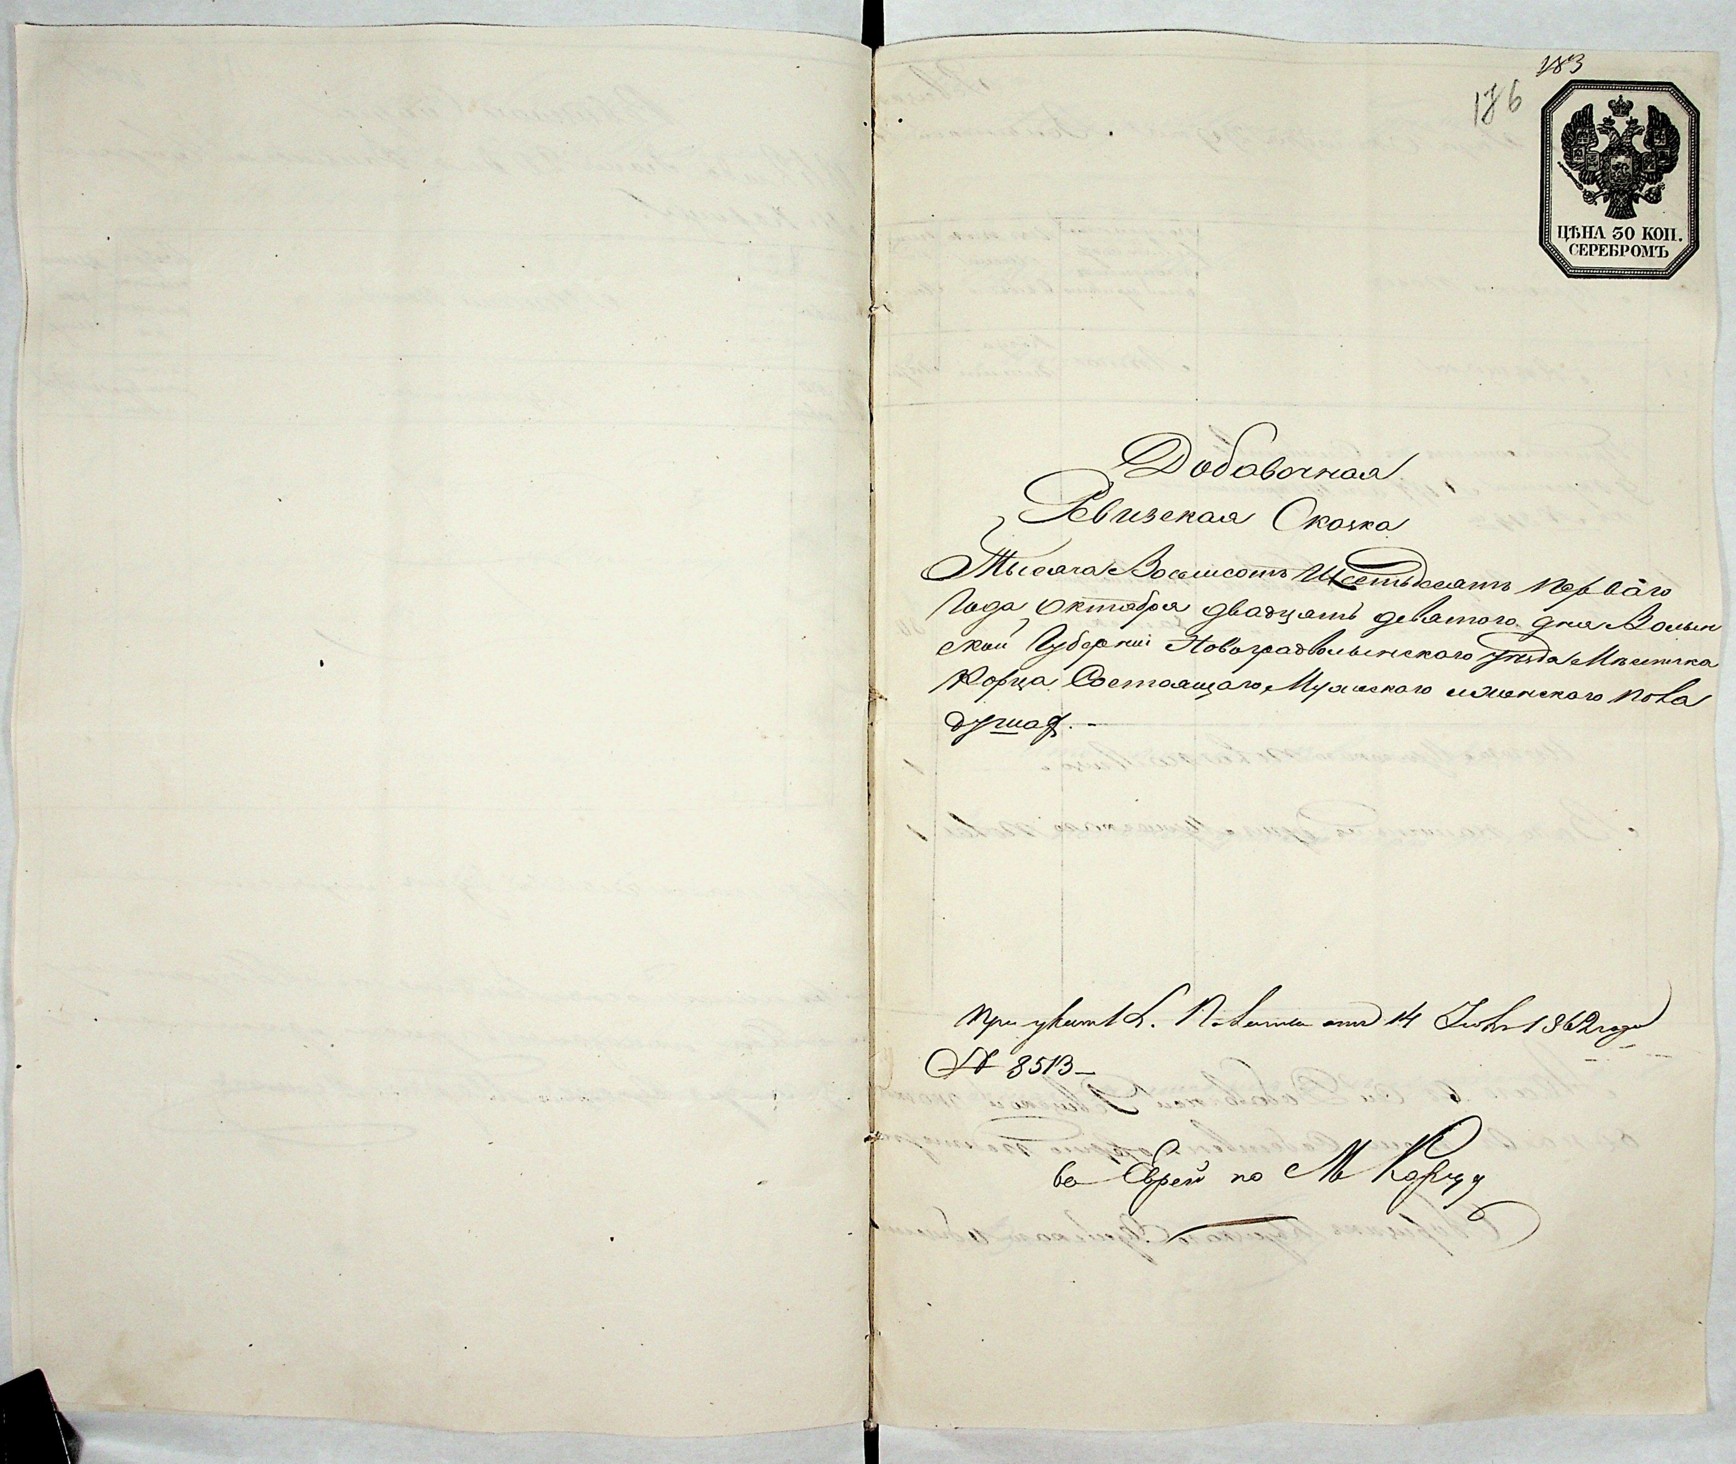 183
186
ЦѢНА 30 КОП.
СЕРЕБРОМЪ
Добавочная
Ревизская Сказка
Тысяча Восемсотъ Шестьдесятъ Перваго
Года Октября двадцать девятого дня Волын
ской Губерніи Новоградволынского уѣзда Мѣстечка
Корца Состоящаго Мужеского и женского пола
душах. -
При указѣ К. Палаты отъ 14 1862 года
№ 8513 -
Еврей по М Корцу